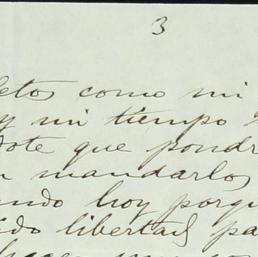 3
letos como mi
y mi tiempo
dote que pondr
n mandarlos
ando hoy porqu
dido libertad pa